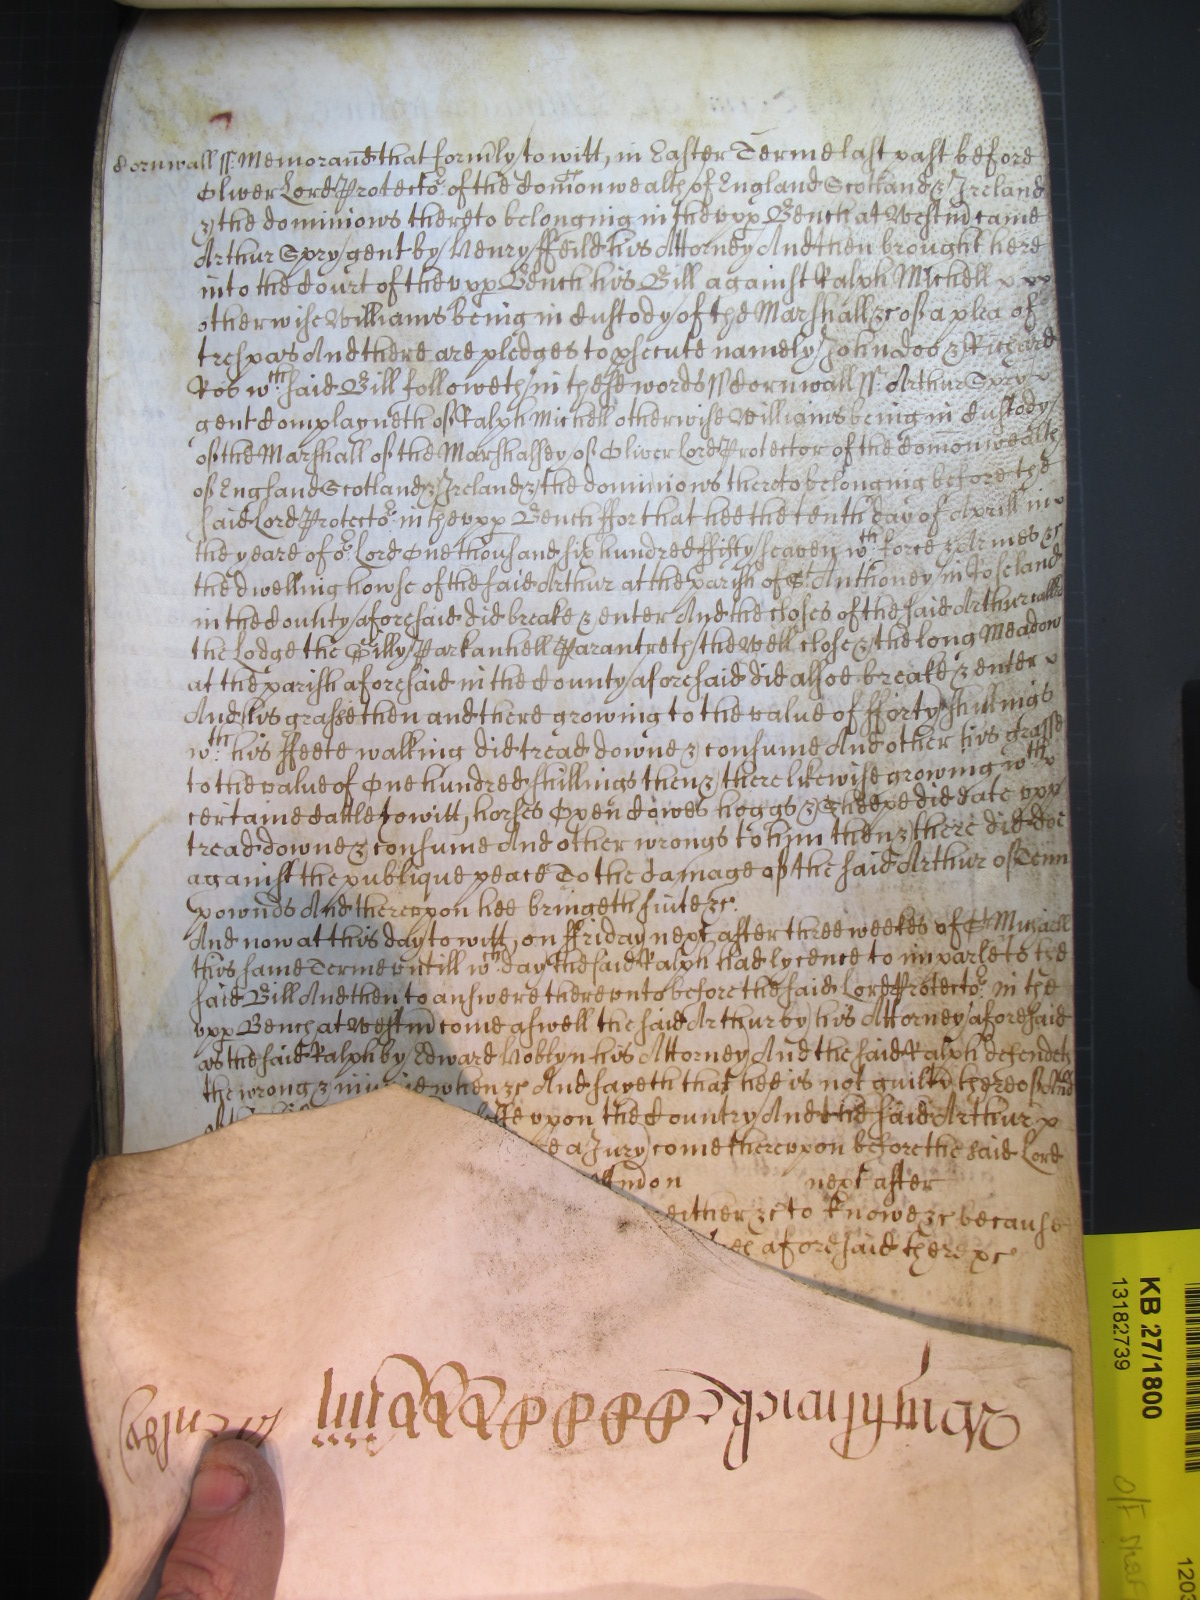 Cornwall ss. Memorand that formly to witt, in Easter Terme last past before
Oliver Lord Protecto.r of the Comonwealth of England Scotland & Ireland
& the dominions thereto belonging in the vpp Bench at Westm came
Arthur Spry gent by Henry ffeild his Attorney And then brought here
into the Court of the vpp Bench his Bill against Ralph Michell
otherwise Williams being in Custody of the Marshall &c of a plea of
trespas And there are pledges to psecute namely John Doo & Richard
Roo w.ch said Bill followeth in these words ss Cornwall ss. Arthur Spry
gent Complayneth of Ralph Michell otherwise Williams being in Custody
of the Marshall of the Marshallsey of Oliver Lord Protector of the Comonwealth
of England Scotland & Ireland & the dominions thereto belonging before the
said Lord Protecto.r in the vpp Bench ffor that hee the tenth day of Aprill in
the yeare of o.r Lord One thousand six hundred ffifty seaven w.th force & Armes &c
the dwelling howse of the said Arthur at the parish of S.t Anthoney in Roseland
in the County aforesaid did breake & enter And the closes of the said Arthur called
the Lodge the Gilly Parkanhell Parantreth the Well close & the long Meadow
at the parish aforesaid in the County aforesaid did alsoe breake & enter
And his grasse then and there growing to the value of fforty shillings
w.th his ffeete walking did tread downe & consume And other his grasse
to the value of One hundred shillings then & there likewise growing w.th
certaine Cattle to witt, horses Oxen Cowes hoggs & Sheepe did eate vpp
tread downe & consume And other wrongs to him then & there did doe
against the publique peace To the damage of the said Arthur of Tenn
pownds And therevpon hee bringeth suite &c.
And now at this day to witt, on ffriday next after three weekes of S.t Michaell
this same Terme vntill w.ch day the said Ralph had lycence to imparle to the
said Bill And then to answere therevnto before the said Lord Protecto.r in the
vpp Bench at Westm come aswell the said Arthur by his Attorney aforesaid
as the said Ralph by Edward Noblyn his Attorney And the said Ralph defendeth
the wrong & iniurie when &c And sayeth that hee is not guilty thereof And
vpon the Country And the said Arthur
a Jury come therevpon before the said Lord
next after
either &c to knowe &c because
aforesaid there &c
KB 27/1800
13182739